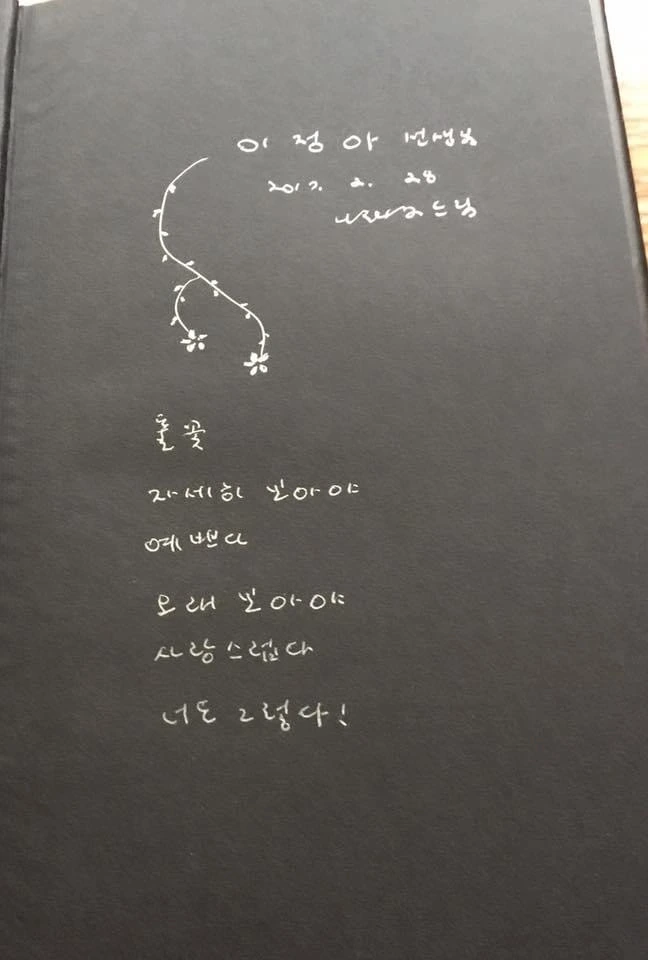 이 정 아 선생님
2017. 2. 28
나태주 드림
풀꽃
자세히 보아야
예쁘다
오래 보아야
사랑스럽다
너도 그렇다!